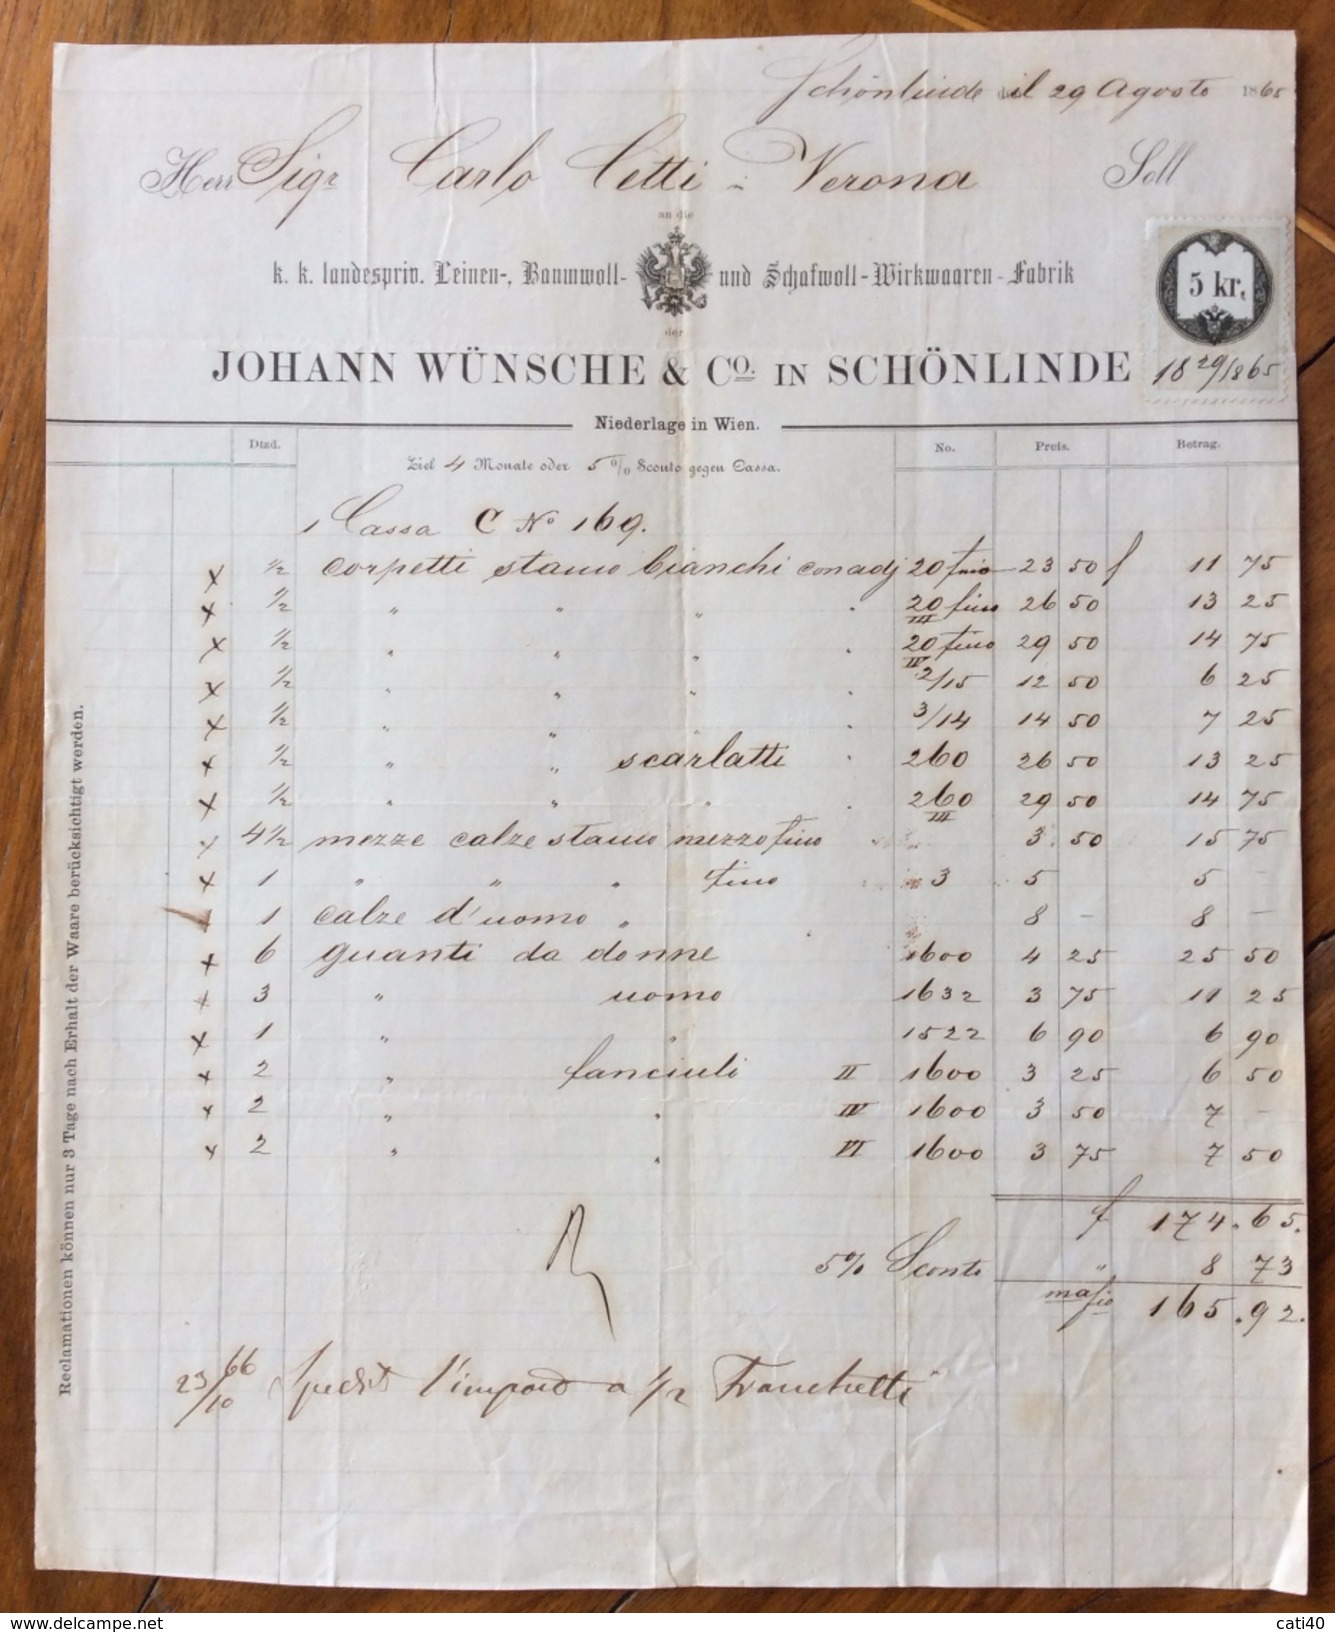 Schönlinde il 29 Agosto 1865
Herr Sigr Carlo Cetti in Verona Soll
an die
k. k. landespriv. Leinen-, Baumwoll- und Schafwoll-Wirkwaaren-Fabrik
5 kr.
der
JOHANN WÜNSCHE & Co. IN SCHÖNLINDE
18 29/8 65
Niederlage in Wien.
Dtzd. No. Preis. Betrag.
Ziel 4 Monate oder 5 % Sconto gegen Cassa.
1 Cassa C No 169.
x ½ corpetti stamo bianchi con adj 20 fino 23 50 f 11 75
x ½ " " " " 20 fino III 26 50 13 25
x ½ " " " " 20 fino IV 29 50 14 75
x ½ " " " " 2/15 12 50 6 25
x ½ " " " " 3/14 14 50 7 25
x ½ " " scarlatti " 260 26 50 13 25
x ½ " " " " 260 III 29 50 14 75
x 4½ mezze calze stamo mezzofino 3 50 15 75
x 1 " " " fino 3 5 5 -
1 calze d'uomo " 8 - 8 -
x 6 guanti da donne 1600 4 25 25 50
x 3 " uomo 1632 3 75 11 25
x 1 " " 1522 6 90 6 90
x 2 " fanciuli II 1600 3 25 6 50
x 2 " " IV 1600 3 50 7 -
x 2 " " VI 1600 3 75 7 50
f 174.65.
5% Sconto " 8 73
165.92.
23/10 66 Spedito l'importo a 1/2 Franchetti
Reclamationen können nur 3 Tage nach Erhalt der Waare berücksichtigt werden.
www.delcampe.net
cati40